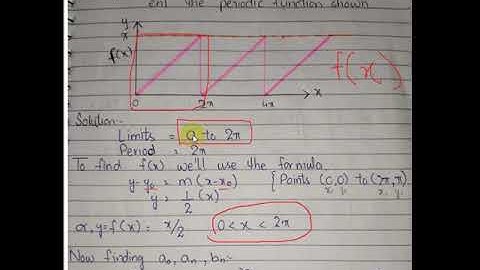 ent the periodic function shown
y
π
f(x)
f(x)
0 2π 4π x
Solution:-
Limits = 0 to 2π
Period = 2π
To find f(x) we'll use the formula
y-y₀ = m(x-x₀) [Points (0,0) to (2π,π)
y = 1/2 (x)
or, y=f(x) = x/2 0<x<2π
Now finding a₀, aₙ, bₙ:-